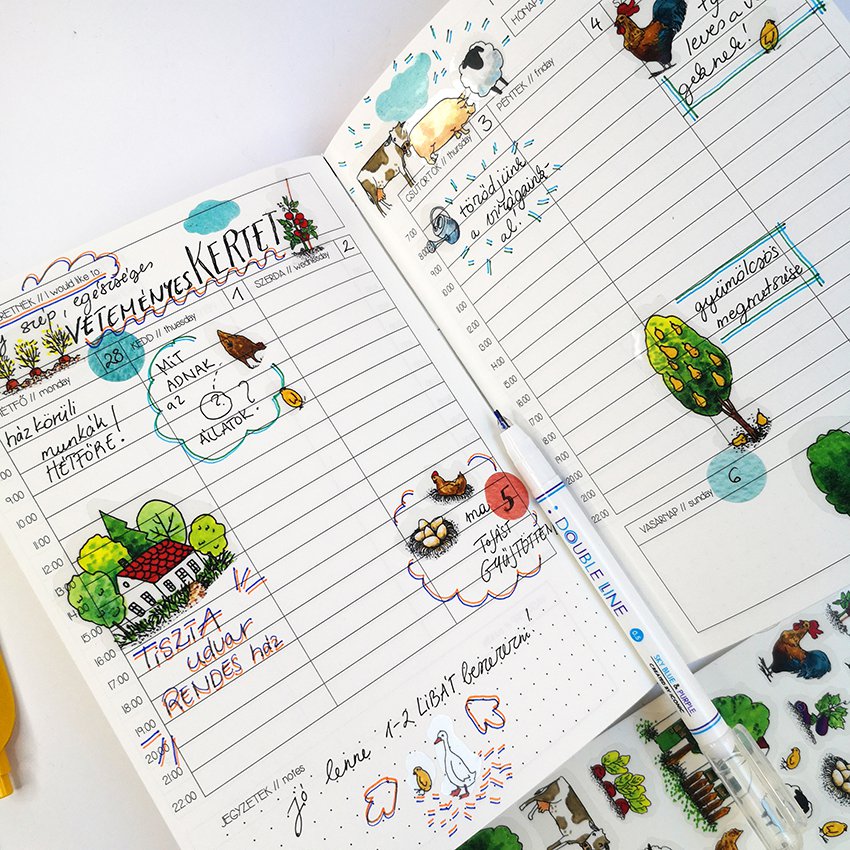 RETNÉK // I would like to
szép, egészséges
VETEMÉNYES KERTET
HÉTFŐ // monday
28
KEDD // thuesday
1
SZERDA // wednesday
2
ház körüli
munkák!
HÉTFŐRE!
MIT
ADNAK
az
?
ÁLLATOK?
9:00
10:00
11:00
12:00
13:00
14:00
15:00
16:00
17:00
18:00
19:00
20:00
21:00
22:00
TISZTA
udvar
RENDES ház
ma 5
TOJÁST
GYŰJTÖTTEM
JEGYZETEK // notes
jó lenne 1-2 LIBÁT beszerezni!
CSÜTÖRTÖK // thursday
3
PÉNTEK // friday
4
HÓNAP
7:00
8:00
9:00
10:00
11:00
12:00
13:00
14:00
15:00
16:00
17:00
18:00
19:00
20:00
21:00
22:00
törődjünk
a virágaink
al.
leves a
geknek!
gyümölcsös
megmetszése
VASÁRNAP // sunday
6
DOUBLE LINE
0.5
SKY BLUE & PURPLE
CREATED BY ICONIC